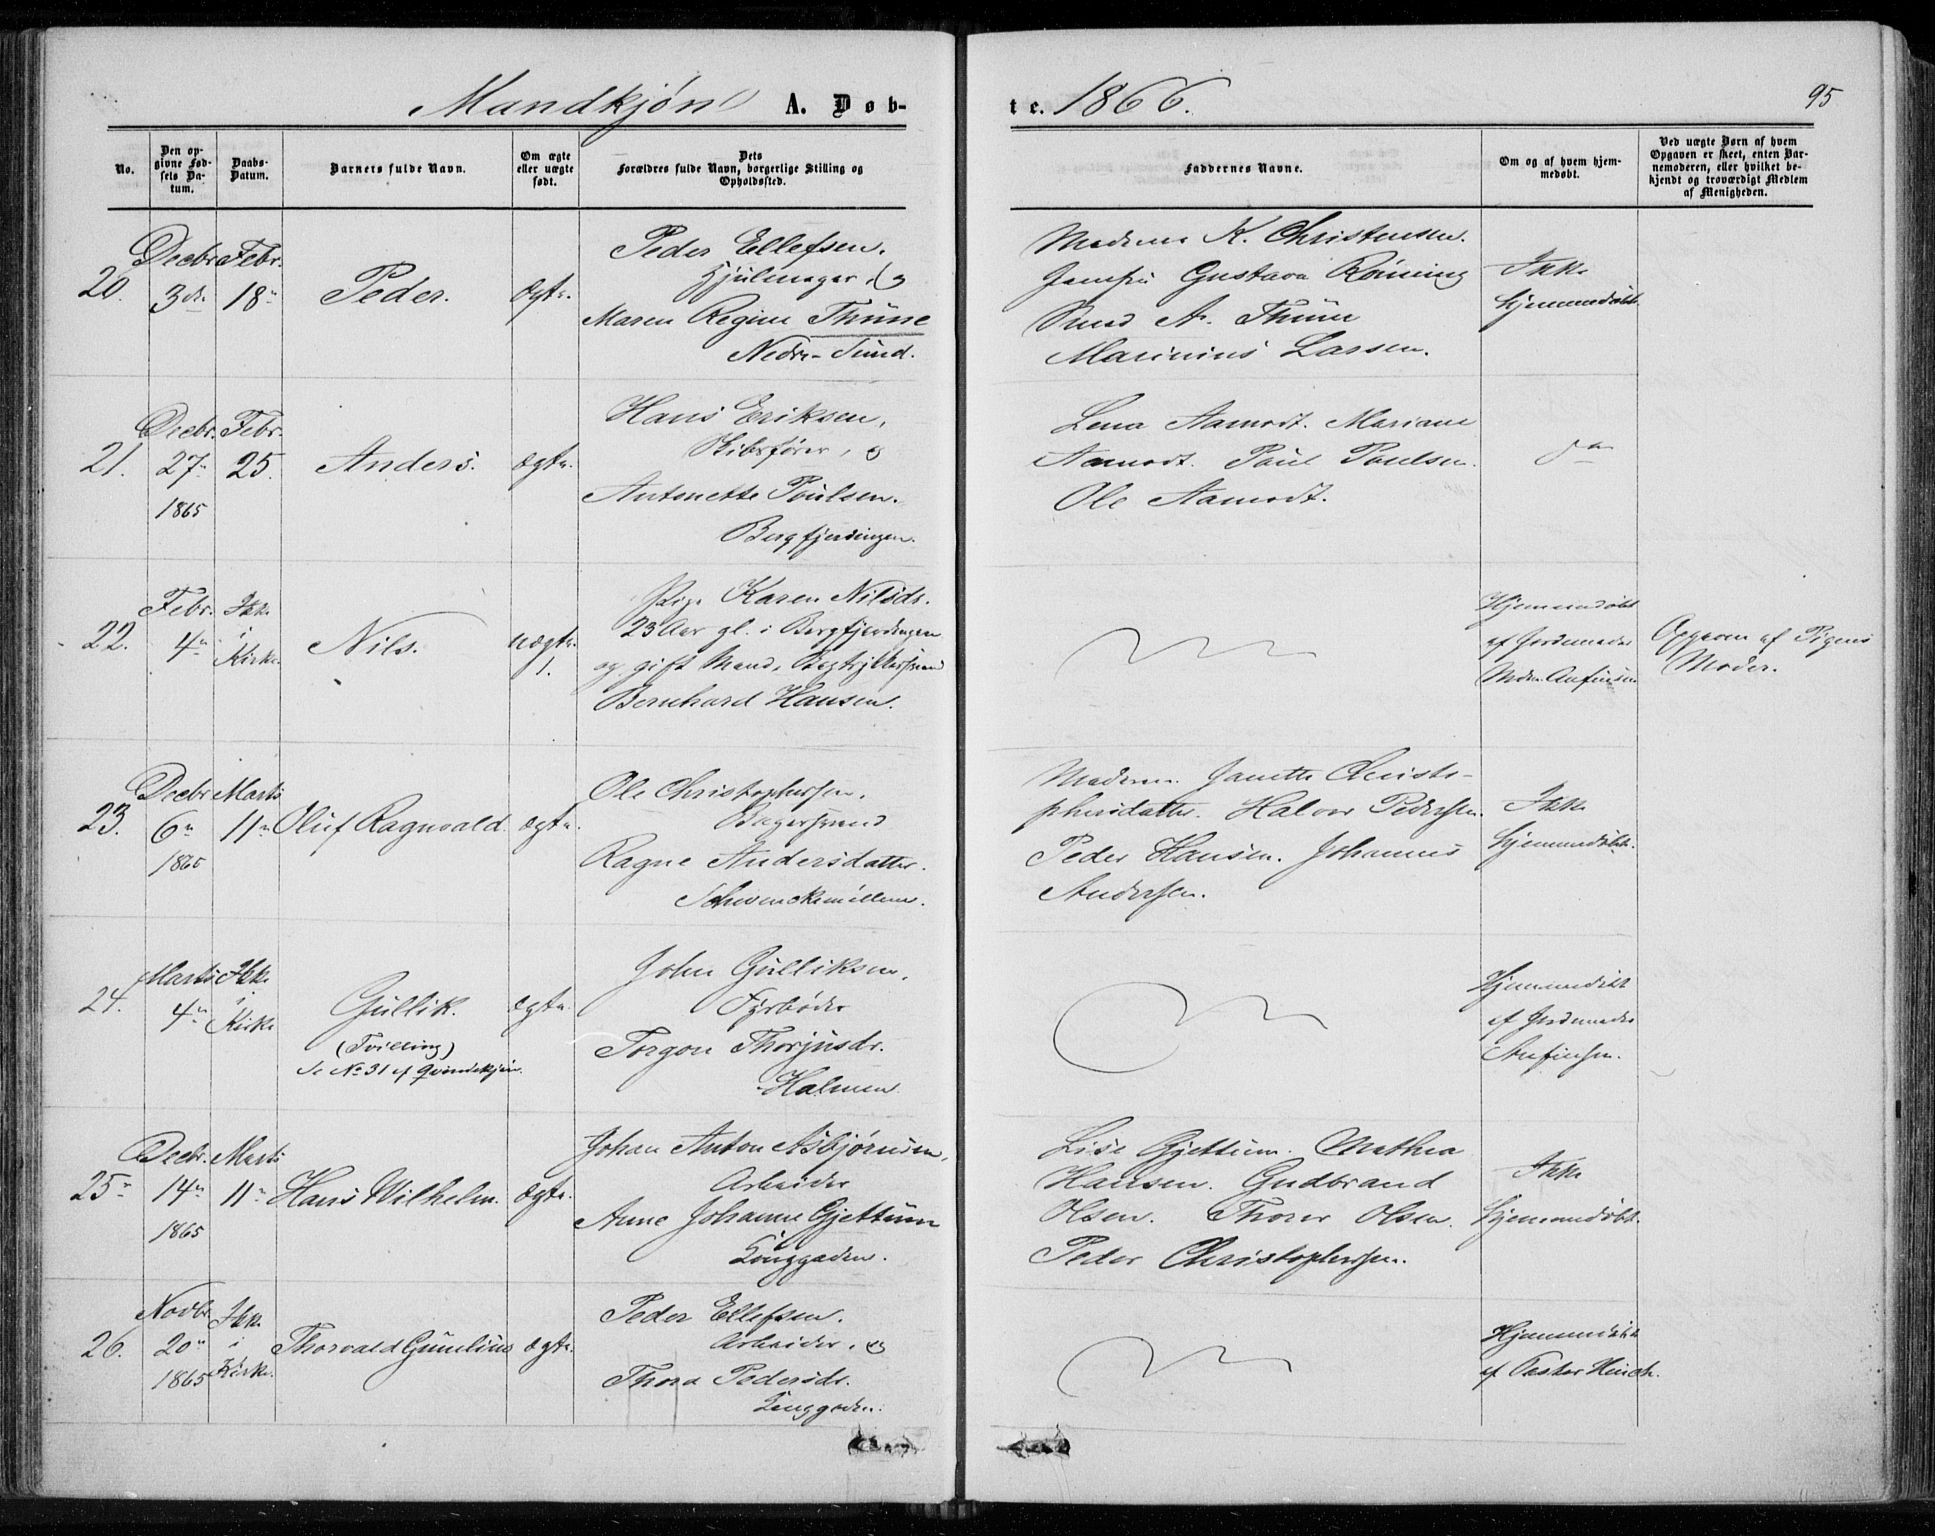 Mandkjøn A. Døb-
te. 1866.
95
No.
Den op-
givne Fød-
sels Da-
tum.
Daabs-
Datum.
Barnets fulde Navn.
Om ægte
eller uægte
født.
Dets
Forældres fulde Navn, borgerlige Stilling og
Opholdssted.
Faddernes Navne.
Om og af hvem hjem-
medøbt.
Ved uægte Børn af hvem
Opgaven er skeet, enten Bar-
nemoderen, eller hvilket be-
kjendt og troværdigt Medlem
af Menigheden.
20.
Decbr.
3die
Febr.
18n
Peder.
ægte.
Peder Ellefsen.
Hjulmager, og
Maren Regine Thüne
Nedre-Tund.
Madame K. Christensen.
Jomfru Gustava Rönning
Knud A. Thüne
Marinius Larsen.
Ikke
hjemmedøbt.
21.
Decbr.
27n
1865
Febr.
25.
Anders.
ægte.
Hans Eriksen,
Skibsfører, og
Antonette Poulsen.
Bergfjerdingen.
Lena Aamodt. Mariane
Aamodt. Paul Poulsen.
Ole Aamodt.
do
22.
Febr.
4n
Ikke
i
Kirke
Nils.
uægte.
1.
Pige Karen Nilsdr.
23 Aar gl. i Bergfjerdingen
og gift Mand,
Bernhard Hansen.
Hjemmedøbt
af Jordemoder
Mdm. Anfinsen
Opgaven af Pigens
Moder.
23.
Decbr.
6n
1865
Marts
11n
Oluf Ragnvald.
ægte.
Ole Christophersen.
Bagersvend
Ragne Andersdatter.
Schwenckemöllen.
Madame Janette Christo-
phersdatter. Halvor Pedersen.
Peder Hansen. Johannes
Andersen.
Ikke
hjemmedøbt.
24.
Marts
4n
Ikke
i
Kirke
Gullik.
(Tvilling)
Se No 31 af Qvindekjøn.
ægte.
John Gulliksen,
Fyrbøder
Torgon Thorjusdr.
Holmen
Hjemmedøbt
af Jordemoder
Anfinsen.
25n
Decbr.
14n
1865
Marts
11n
Hans Wilhelm.
ægte.
Johan Anton Asbjørnsen,
Arbeider
Anne Johanne Gjettum
Konggaden.
Lise Gjettum. Mathea
Hansen. Gudbrand
Olsen. Thorer Olsen.
Peder Christophersen.
Ikke
Hjemmedøbt.
26.
Novbr.
20n
1865
Ikke
i
Kirke.
Thorvald Gunelius
ægte.
Peder Ellefsen.
Arbeider, og
Thora Pedersdr.
Konggaden.
Hjemmedøbt
af Pastor Heuch.